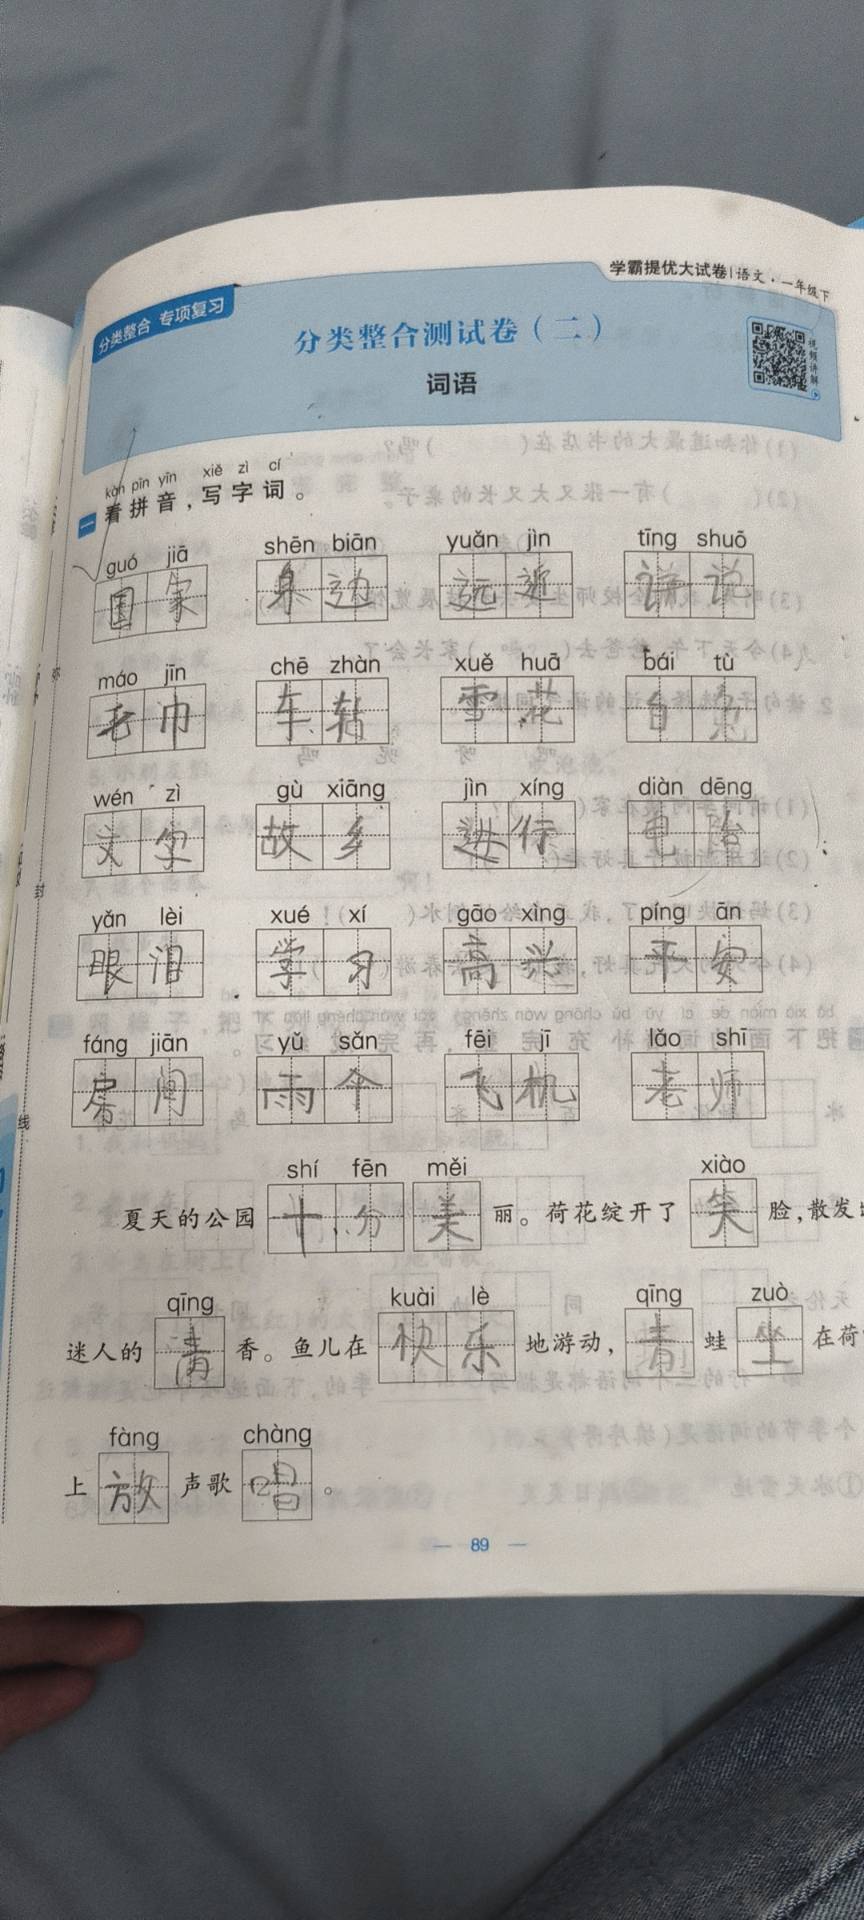 学霸提优大试卷 | 语文·一年级下
分类整合 专项复习
分类整合测试卷（二）
词语
视频讲解
kàn pīn yīn xiě zì cí
一 看拼音，写字词。
guó jiā shēn biān yuǎn jìn tīng shuō
国家 身边 远近 说
máo jīn chē zhàn xuě huā bái tù
毛巾 车站 雪花 白兔
wén zì gù xiāng jìn xíng diàn dēng
文字 故乡 进行 电
yǎn lèi xué xí gāo xìng píng ān
眼泪 学习 高兴 平安
fáng jiān yǔ sǎn fēi jī lǎo shī
房间 雨伞 飞机 老师
shí fēn měi xiào
夏天的公园十分美丽。荷花绽开了笑脸，散发
qīng kuài lè qīng zuò
迷人的清香。鱼儿在快乐地游动，青蛙坐在荷
fàng chàng
上放声歌唱。
封
线
— 89 —